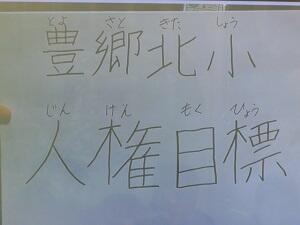 とよ さと きた しょう
豊郷北小
じん けん もく ひょう
人権目標